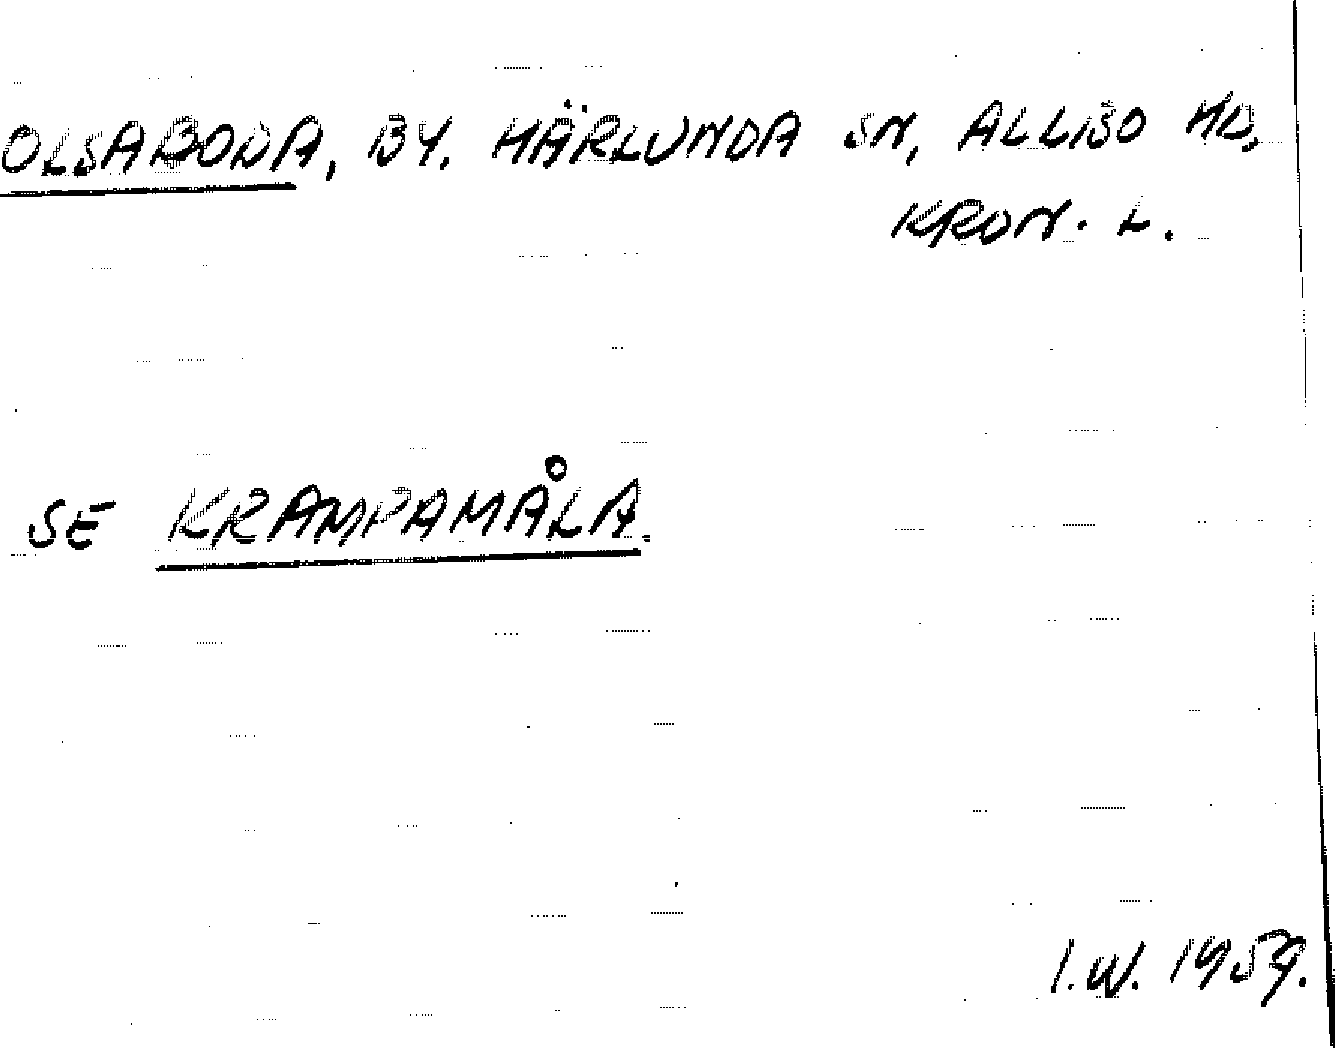 OLSABODA, BY. HÄRLUNDA SN, ALLBO HD,
KRON. L.
SE KRAMPAMÅLA.
I.W. 1959.